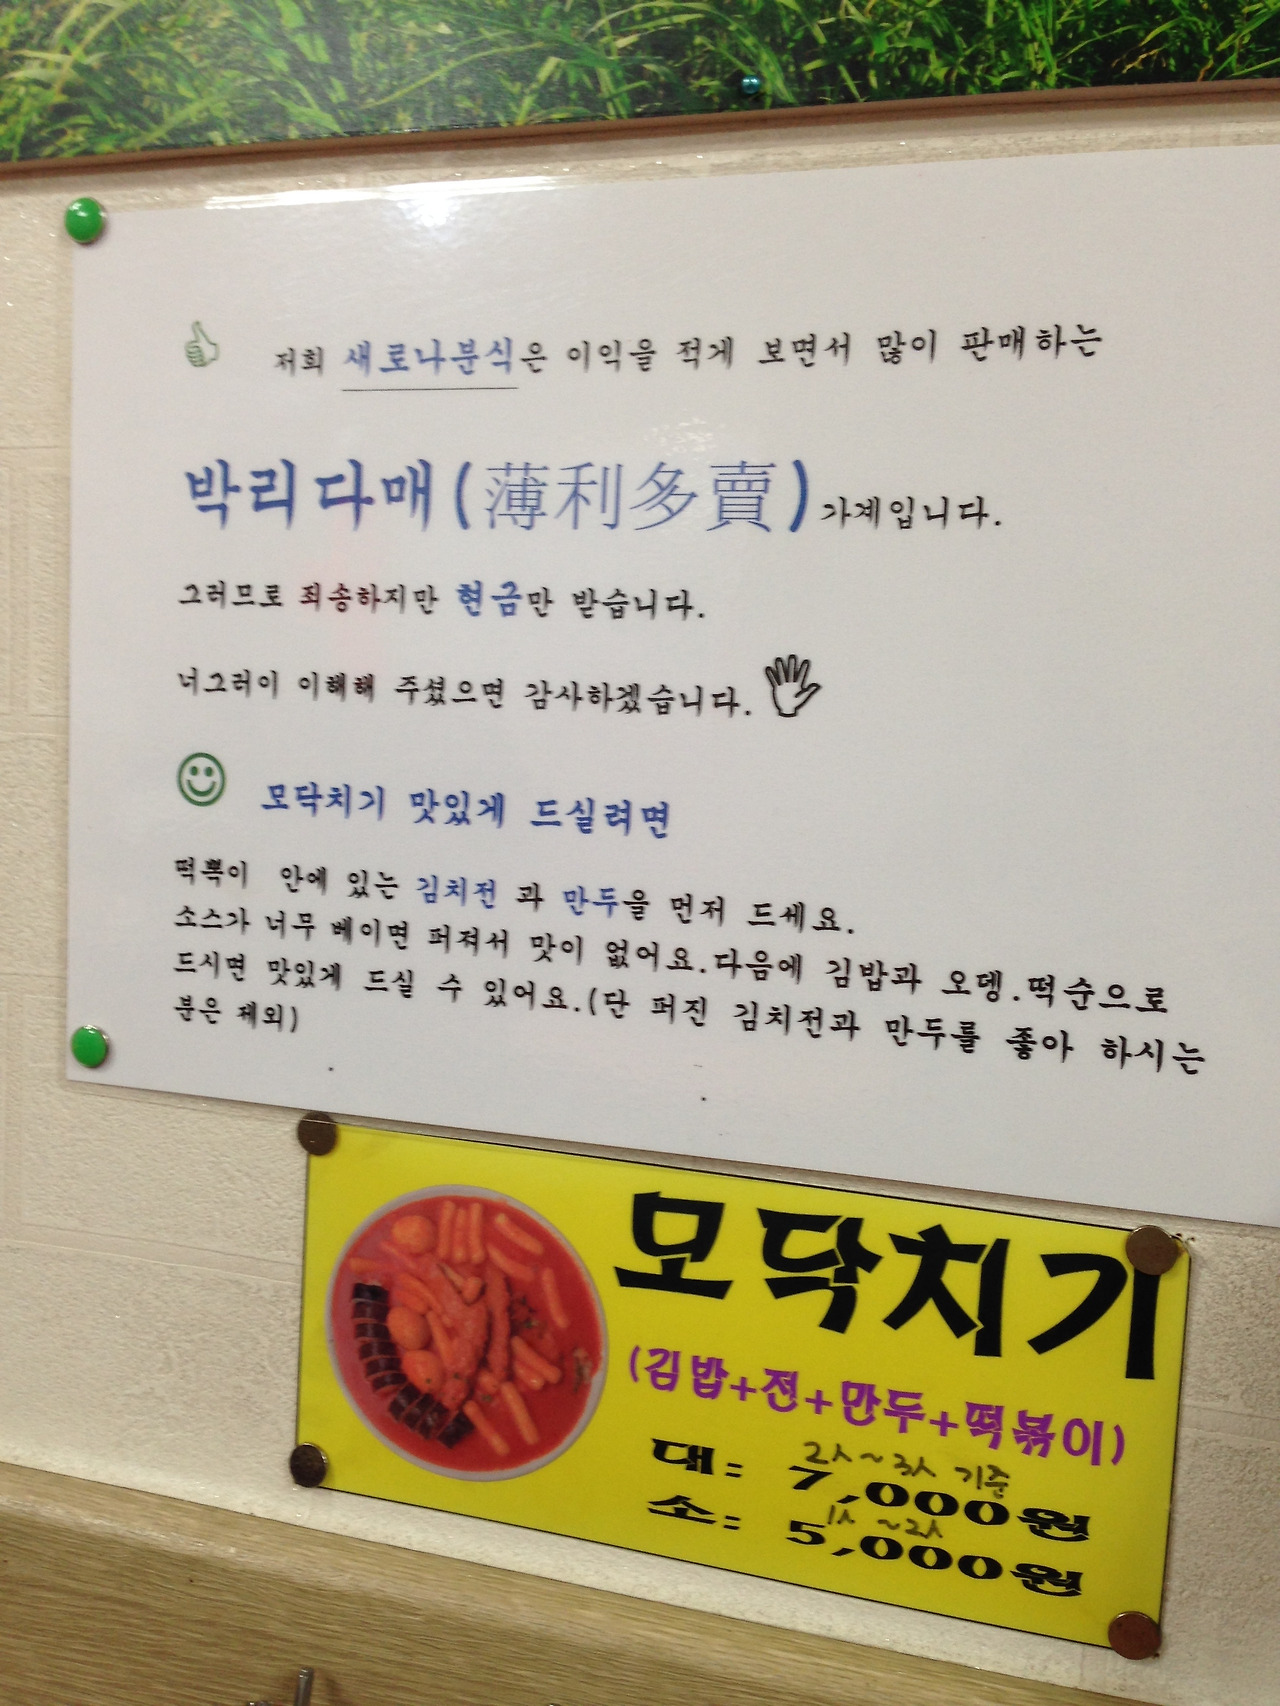 저희 새로나분식은 이익을 적게 보면서 많이 판매하는
박리다매(薄利多賣)가계입니다.
그러므로 죄송하지만 현금만 받습니다.
너그러이 이해해 주셨으면 감사하겠습니다.
모닥치기 맛있게 드실려면
떡뽁이 안에 있는 김치전 과 만두을 먼저 드세요.
소스가 너무 베이면 퍼져서 맛이 없어요.다음에 김밥과 오뎅.떡순으로
드시면 맛있게 드실 수 있어요.(단 퍼진 김치전과 만두를 좋아 하시는
분은 제외)
모닥치기
(김밥+전+만두+떡볶이)
2人~3人 기준
대: 7,000원
1人~2人
소: 5,000원